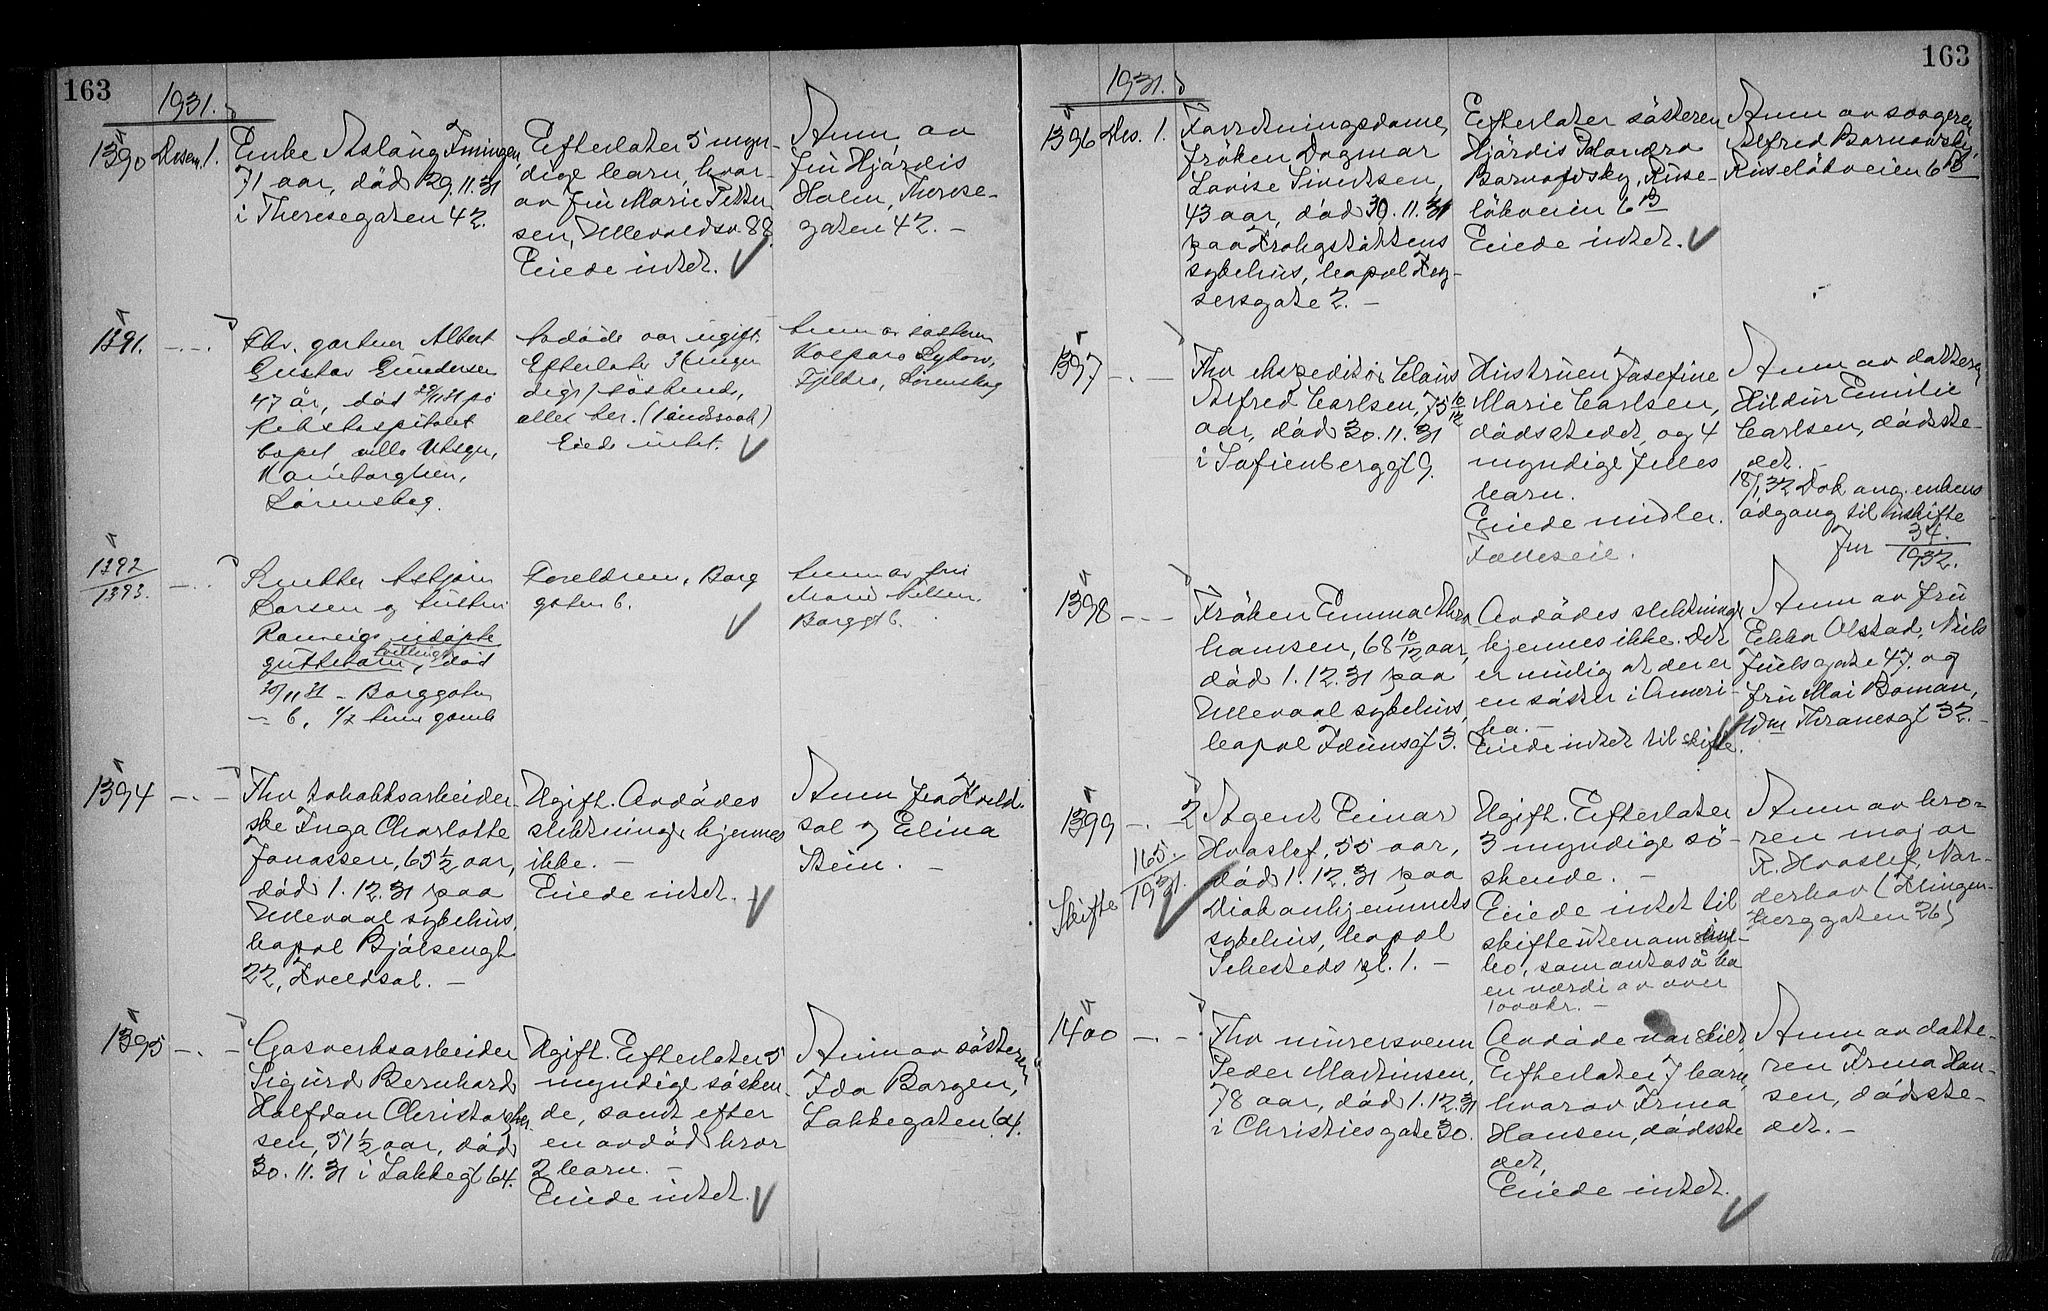 163
1931.
1390 Desem. 1.
Enke Aslaug Tmingen,
71 aar, död 29.11.31
i Theresegaten 42.
Efterlater 5 myn-
dige barn, hvor-
av fru Marie Petter
sen, Ullevoldsv. 88.
Eiede intet.
Anm. av
fru Hjördis
Holm, Therese-
gaten 42. -
1391. -.-
Fhv. gartner Albert
Gustav Gundersen
47 år, död 29/11 31 på
Rikshospitalet
bopel villa Utsyn,
Lørenskog.
Avdöde var ugift.
Efterlater 3 (myn
dige) söskende,
eller ber.
Eiede intet.
Anm av søsteren
Fjeldbo, Lørenskog
1392/1393. -.-
Asbjørn
Larsen og hustru
Rannveigs udöpte
guttebarn, tvillinger, död
30/11 31 - Borggaten
6, 1/2 time gamle
Foreldrene, Borg
gaten 6.
Anm av fru
Marie Nilsen
Borggt 6.
1394 -.-
Fhv tobakksarbeider-
ske Inga Charlotte
Jonassen, 65 1/2 aar,
död 1.12.31 paa
Ullevaal sykehus,
bopel Bjölsengt
22, Kveldsol. -
Ugift. Avdödes
slektninger kjennes
ikke. -
Eiede intet.
Anm fra Kveld-
sol v/ Elina
Stein. -
1395 -.-
Gasverksarbeider
Sigurd Bernhard
Halfdan Christoffer-
sen, 51 1/2 aar, död
30.11.31 i Lakkegt 64.
Ugift. Efterlater 5
myndige sösken-
de, samt efter
en avdöd bror
2 barn. -
Eiede intet.
Anm av søsteren
Ida Borgen,
Lakkegaten 64.
163
1931.
1396 Des. 1.
Forretningsdame,
fröken Dagmar
Lovise Sivertsen,
43 aar, död 30.11.31
paa Krohgstöttens
sykehus, bopel Key-
sersgate 2. -
Efterlater søsteren
Hjördis Walandra
Barnowsky, Ruse-
lökveien 6 B
Eiede intet.
Anm av svogeren
Alfred Barnowsky,
Ruselökveien 6 B
1397 -.-
Fhv ekspeditör Claus
Alfred Carlsen, 75 10/12
aar, död 30.11.31
i Sofienberggt 9.
Hustruen Josefine
Marie Carlsen,
dödsstedet, og 4
myndige felles
barn.
Eiede midler.
Felleseie.
Anm av datteren
Hildur Emilie
Carlsen, dödsste-
det. -
18/1. 32 Dok ang. enkens
adgang til uskifte
Jnr 34./1932.
1398 -.-
Fröken Emma Abra
hamsen, 68 10/12 aar,
död 1.12.31 paa
Ullevaal sykehus,
bopel Idunsgt 3.
Avdödes slektninger
kjennes ikke. Det
er mulig at der er
en søster i Ameri-
ka. -
Eiede intet til skifte.
Anm av fru
Ekka Olstad, Niels
Juels gate 47. og
fru Mai Boman,
Wm Thranesgt 32. -
1399 -.- 2
Skifte 165./1931.
Agent Einar
Haaslef, 55 aar,
död 1.12.31 paa
Diakonhjemmets
sykehus, bopel
Sehesteds pl. 1. -
Ugift. Efterlater
3 myndige sö-
skende. -
Eiede intet til
skifte utenom
bo, som antas å ha
en værdi av over
1000 kr. -
Anm av bro-
ren major
R. Haaslef, Nor-
derhov (Klingen-
berggaten 26)
1400 -.-
Fhv murersvenn
Peder Martinsen,
78 aar, död 1.12.31
i Christiesgate 30.
Avdöde var skilt,
Efterlater 7 barn,
hvorav Irma
Hansen, dödsste
det,
Eiede intet.
Anm av datte-
ren Irma Han-
sen, dödsste-
det. -